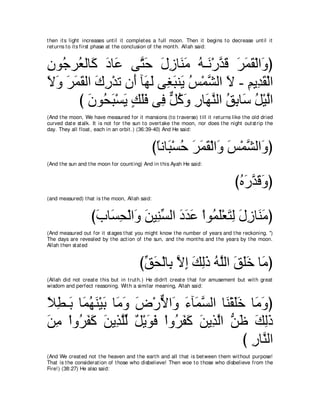 then its light increases until it completes a full moon. Then it begins to decrease until it
returns to its first phase at the conclusion of the month. Allah said:
(وَالْقَمَرَ قَدَّرْنَـهُ مَنَازِلَ حَتَّى عَادَ كَالعُرجُونِ
الْقَدِيمِ - لاَ الشَّمْسُ يَنبَغِى لَهَآ أَن تدْرِكَ القَمَرَ وَلاَ
الَّيْلُ سَابِقُ النَّهَارِ وَكُلٌّ فِى فَلَكٍ يَسْبَحُونَ )
(And the moon, We have measured for it mansions (to traverse) till it returns like the old dried
curved date stalk. It is not for the sun to overtake the moon, nor does the night outstrip the
day. They all float, each in an orbit.) (36:39-40) And He said:
(وَالشَّمْسَ وَالْقَمَرَ حُسْبَاناً)
(And the sun and the moon for counting) And in this Ayah He said:
(وَقَدَّرَهُ)
(and measured) that is the moon, Allah said;
(مَنَازِلَ لِتَعْلَمُواْ عَدَدَ السِّنِينَ وَالْحِسَابَ)
(And measured out for it stages that you might know the number of years and the reckoning.")
The days are revealed by the action of the sun, and the months and the years by the moon.
Allah then stated
(مَا خَلَقَ اللَّهُ ذَلِكَ إِلاَّ بِالْحَقِّ)
(Allah did not create this but in truth.) He didn't create that for amusement but with great
wisdom and perfect reasoning. With a similar meaning, Allah said:
(وَمَا خَلَقْنَا السَّمَآءَ وَالاٌّرْضَ وَمَا بَيْنَهُمَا بَـطِلاً
ذَلِكَ ظَنُّ الَّذِينَ كَفَرُواْ فَوَيْلٌ لِّلَّذِينَ كَفَرُواْ مِنَ
النَّارِ )
(And We created not the heaven and the earth and all that is between them without purpose!
That is the consideration of those who disbelieve! Then woe to those who disbelieve from the
Fire!) (38:27) He also said: